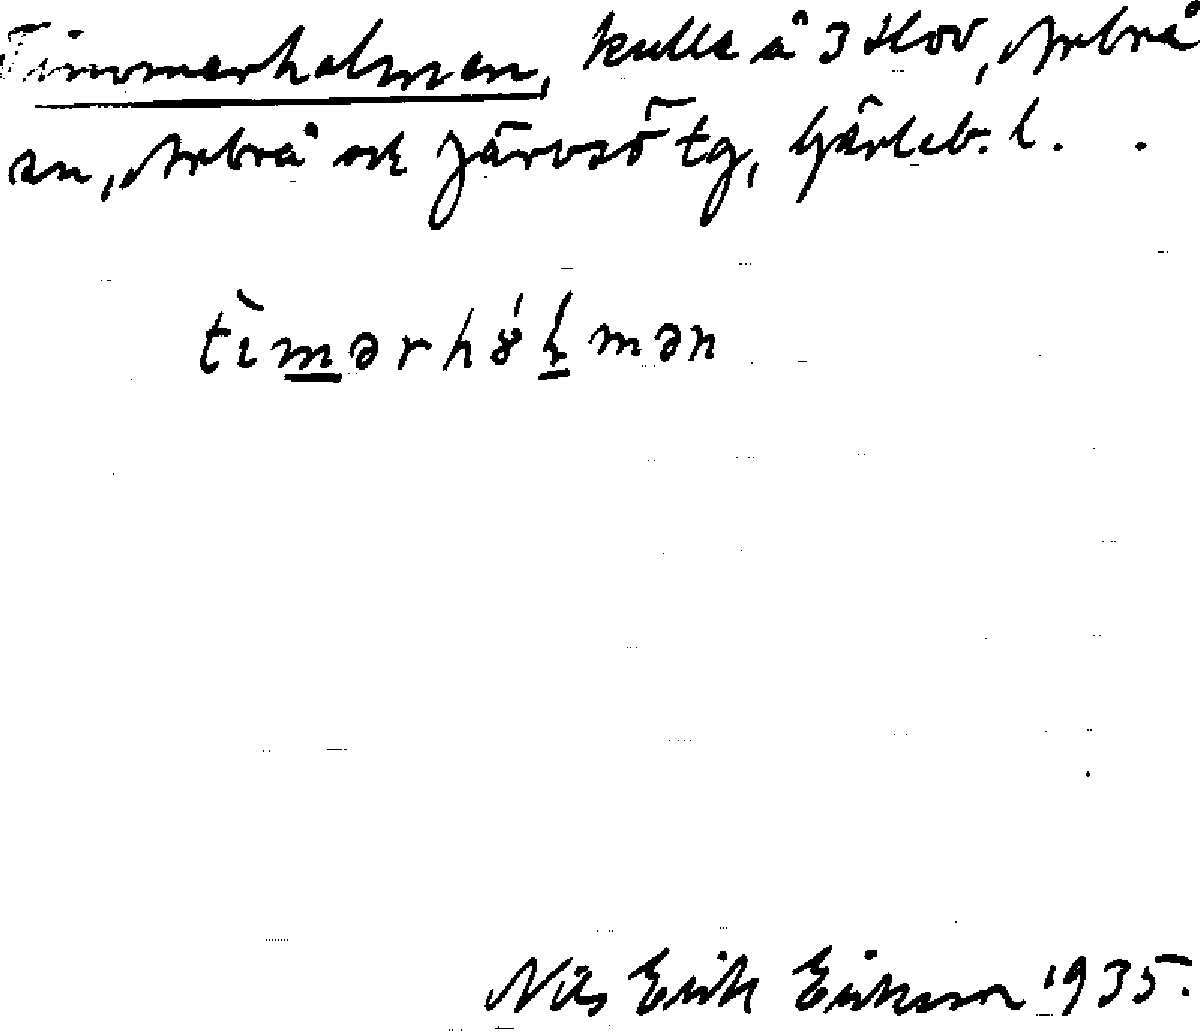 Timmerholmen, kulle å 3 Hov, Arbrå
sn, Arbrå och Järvsö tg, Gävleb. l.
tìmərhó̤lmən
Nils Erik Eriksson 1935.